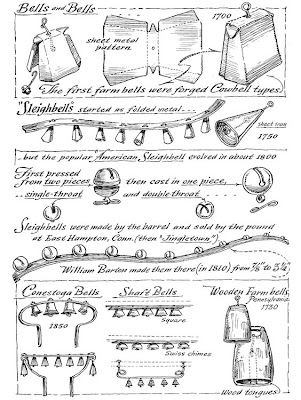 Bells and Bells
1700
sheet metal
pattern
The first farm bells were forged Cowbell types.
"Sleighbells started as folded metal...
sheet iron
1750
...but the popular American Sleighbell evolved in about 1800
First pressed
from two pieces
then cast in one piece,
...single-throat
and double throat
Sleighbells were made by the barrel and sold by the pound
at East Hampton, Conn. (then "Jingletown")
William Barton made them there (in 1810) from 7/8" to 3 1/4"
Conestoga Bells
Shaft Bells
Wooden Farm bells
Pennsylvania
1750
1850
Square
Swiss chimes
Wood tongues